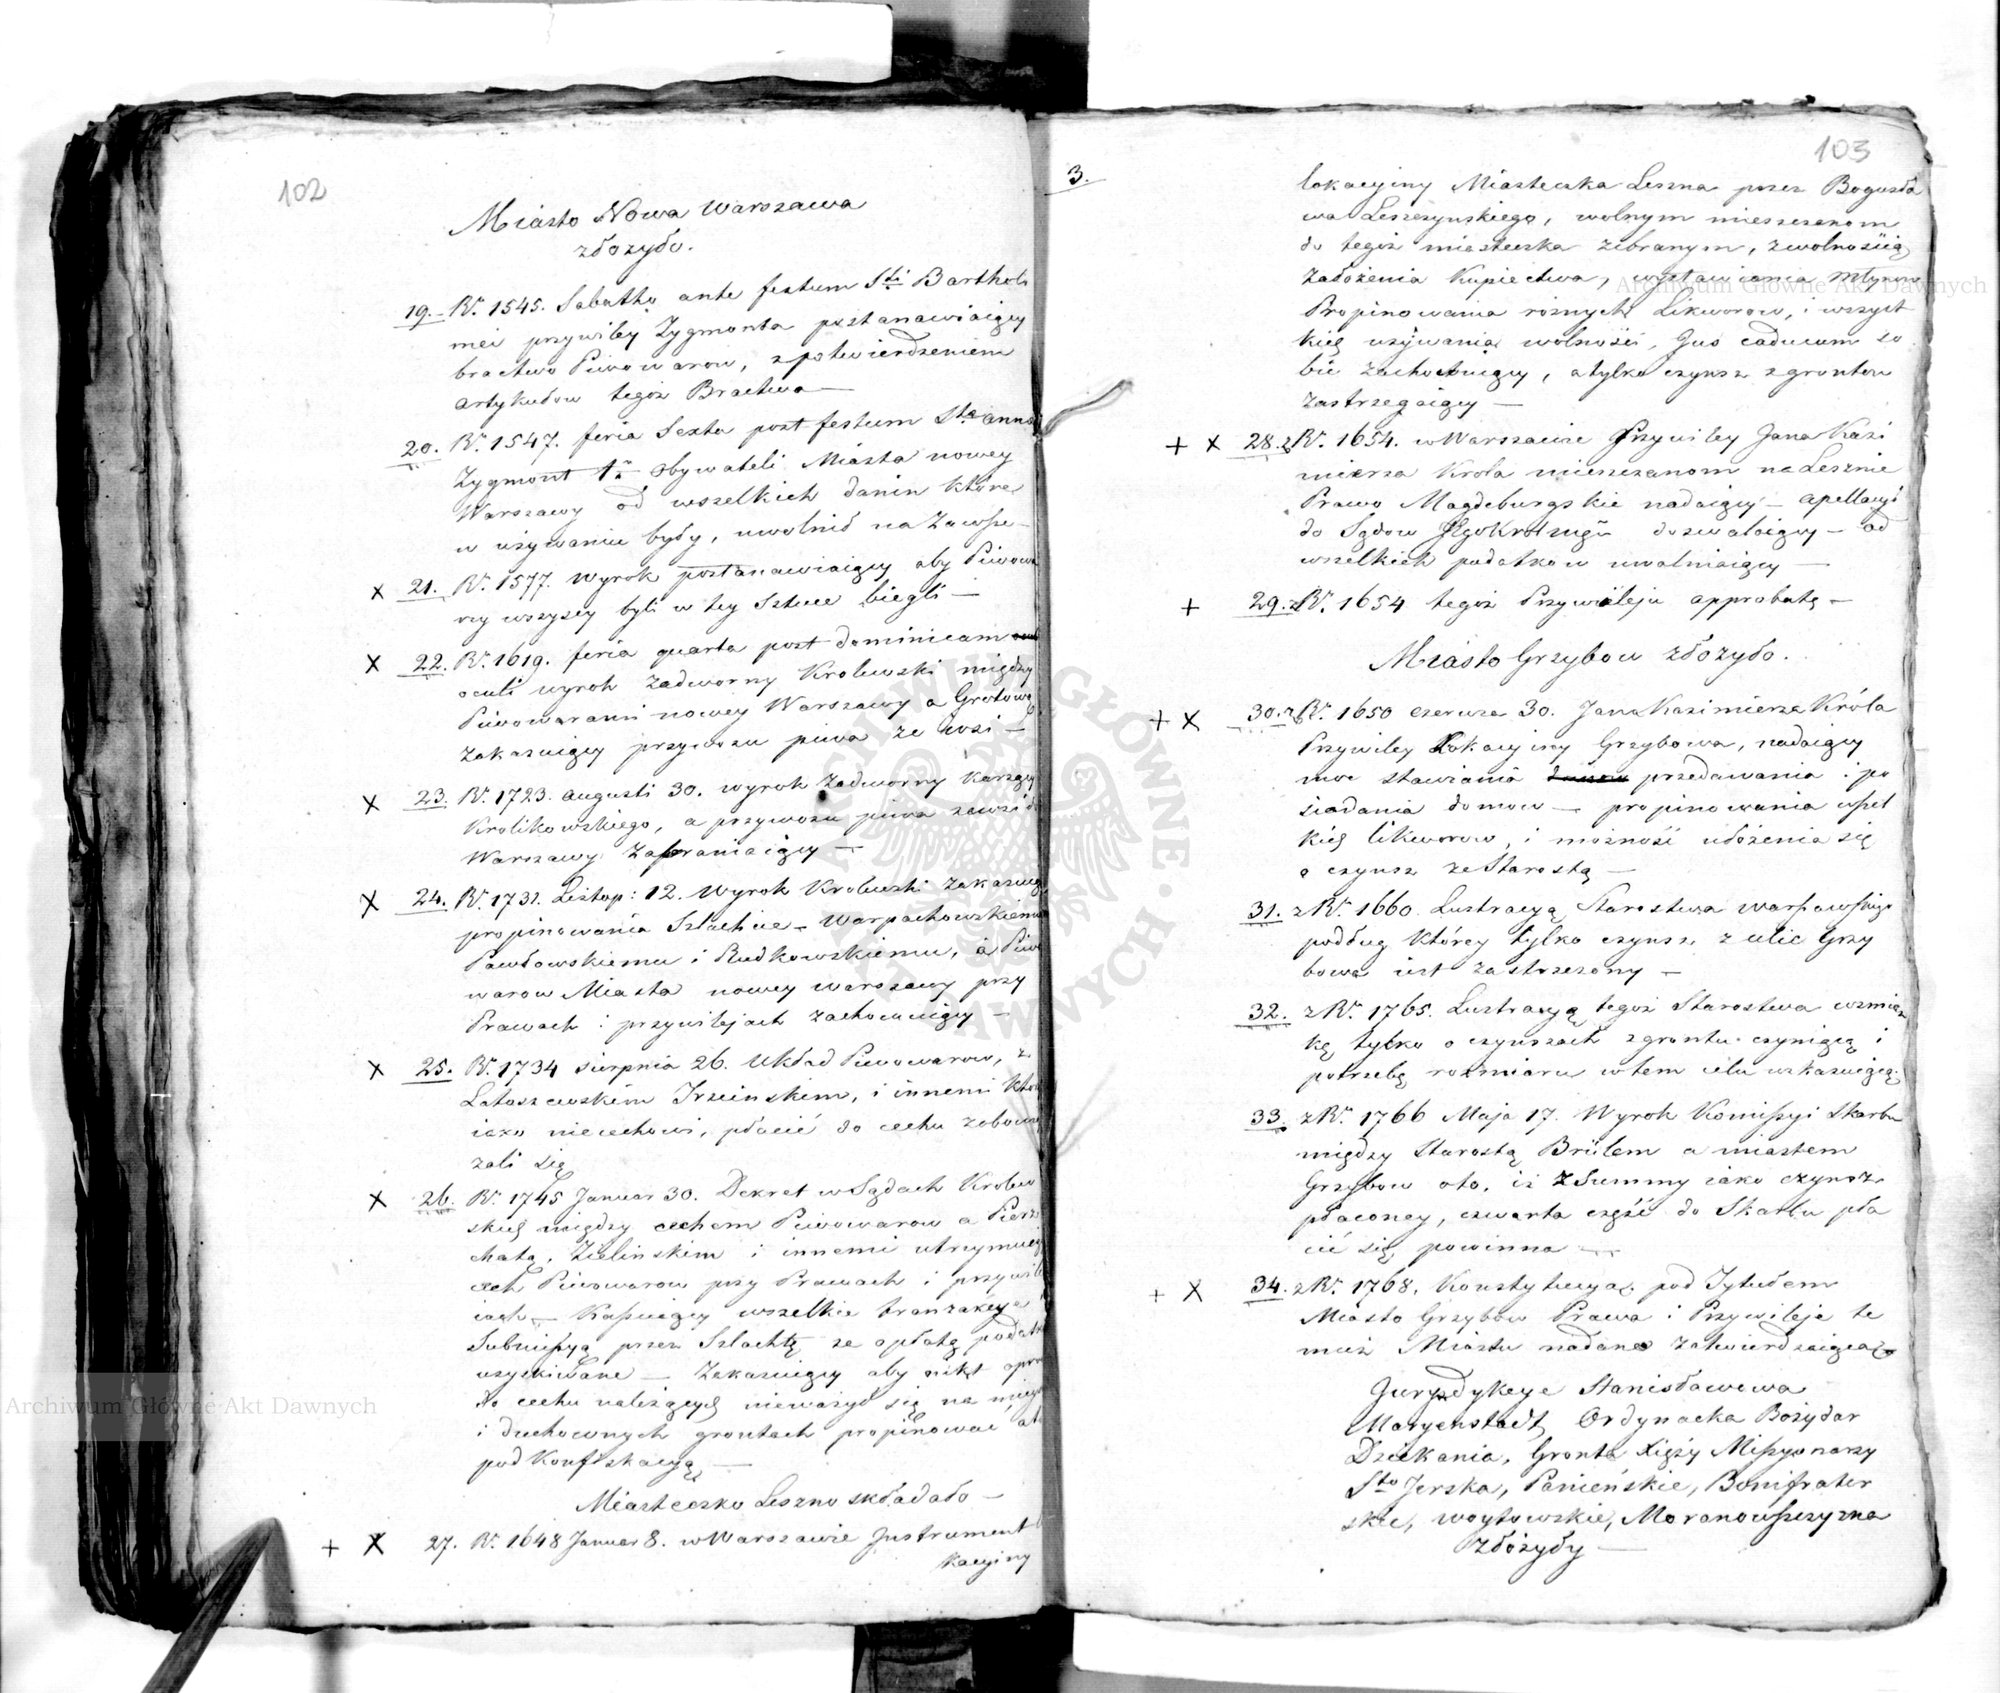 102
Miasto Nowa Warszawa
złożyło.
19. R. 1545. Sabatho ante festum Sti Bartholo
mei przywiley Zygmonta postanawiaiący
bractwo Piwowarow, z potwierdzeniem
artykułow tegoż Bractwa —
20. R. 1547. feria Sexta post festum Stae Annae
Zygmont 1. obywateli Miasta nowey
Warszawy od wszelkich danin które
w używaniu były, uwolnił na zawsze —
x 21. R. 1577. Wyrok postanawiaiący aby Piwowa
rzy wszyscy byli w tey Sztuce biegli —
x 22. R. 1619. feria quarta post dominicam
oculi wyrok Zadworny Krolewski między
Piwowarami nowey Warszawy a Grotową
zakazuiący przywozu piwa ze wsi —
x 23. R. 1723. augusti 30. wyrok Zadworny karzący
Krolikowskiego, a przywozu piwa zewsi do
Warszawy zabraniaiący —
x 24. R. 1731. Listop: 12. Wyrok Krolewski zakazuią
propinowania Szlachcie — Warpachowskiemu
Pawłowskiemu i Rudkowskiemu, a Piwo
warow Miasta nowey warszawy przy
Prawach i przywilejach zachowuiący —
x 25. R. 1734 sierpnia 26. Układ Piwowarow, z
Latoszewskim Trzcinskim, i innemi ktorzy
iako niecechowi, płacić do cechu zobowią
zali się
x 26. R. 1745 Januar 30. Dekret w Sądach Krolew
skich między cechem Piwowarow a Pierz
chatą, Zielinskim i innemi utrzymuiący
cech Piwowarow przy Prawach i przywile
iach — Kassuiący wszelkie tranzakcye i
Submissyą przez Szlachtę ze opłatę podatk
uzyskiwane — Zakazuiący aby nikt oprocz
do cechu należących nieważył się na mieysk
i duchownych grontach propinować a to
pod Konfiskacyą —
Miasteczko Leszno składało —
+ x 27. R. 1648 Januar 8. w Warszawie Instrument
kacyiny
3.
103
lokacyiny Miasteczka Leszna przez Bogusła
wa Leszczynskiego, wolnym mieszczanom
do tegoż miasteczka zebranym, z wolnością
założenia Kupiectwa, wystawiania młynow
Propinowania roznych Likworow, i wszyst
kich używania wolności, Jus caducum so
bie zachowuiący, a tylko czynsz z grontow
zastrzegaiący —
+ x 28. z R. 1654. w Warszawie Przywiley Jana Kazi
mierza Krola mieszczanom na Lesznie
Prawo Magdeburgskie nadaiący — apellacyi
do Sądow JegoKrolMości dozwalaiący — od
wszelkich podatkow uwalniaiący —
+ 29. z R. 1654 tegoż Przywileju approbatę —
Miasto Grzybow złożyło.
+ x 30. z R. 1650 czerwca 30. Jana Kazimierza Króla
Przywiley Lokacyiny Grzybowa, nadaiący
moc stawiania przedawania i po
siadania domow — propinowania wszel
kich likworow, i możność ułożenia się
o czynsz ze Starostą —
31. z R. 1660. Lustracyą Starostwa warszawskiego
podług którey tylko czynsz z ulic Grzy
bowa iest zastrzeżony —
32. z R. 1765. Lustracyą tegoż Starostwa wzmian
kę tylko o czynszach z grontu czyniącą i
potrzebę rozmiaru w tem celu wskazuiącą.
33. z R. 1766 Maja 17. Wyrok Komissyi Skarbu
między Starostą Brülem a miastem
Grzybow oto, iż z Summy iako czynsz
płaconey, czwarta część do Skarbu pła
cić się powinna —
+ x 34. z R. 1768. Konstytucya pod Tytułem
Miasto Grzybow Prawa i Przywileja te
muż Miastu nadane zatwierdzaiąca
Jurysdykcye Stanisławowa
Maryenstadt, Ordynacka Bożydar
Dziekania, Gronta Xięży Missyonarzy
Sto Jerska, Panieńskie, Bonifrater
skie, woytowskie, Moranowszczyzna
złożyły —
Archiwum Główne Akt Dawnych
Archiwum Główne Akt Dawnych
ARCHIWUM GŁÓWNE AKT DAWNYCH